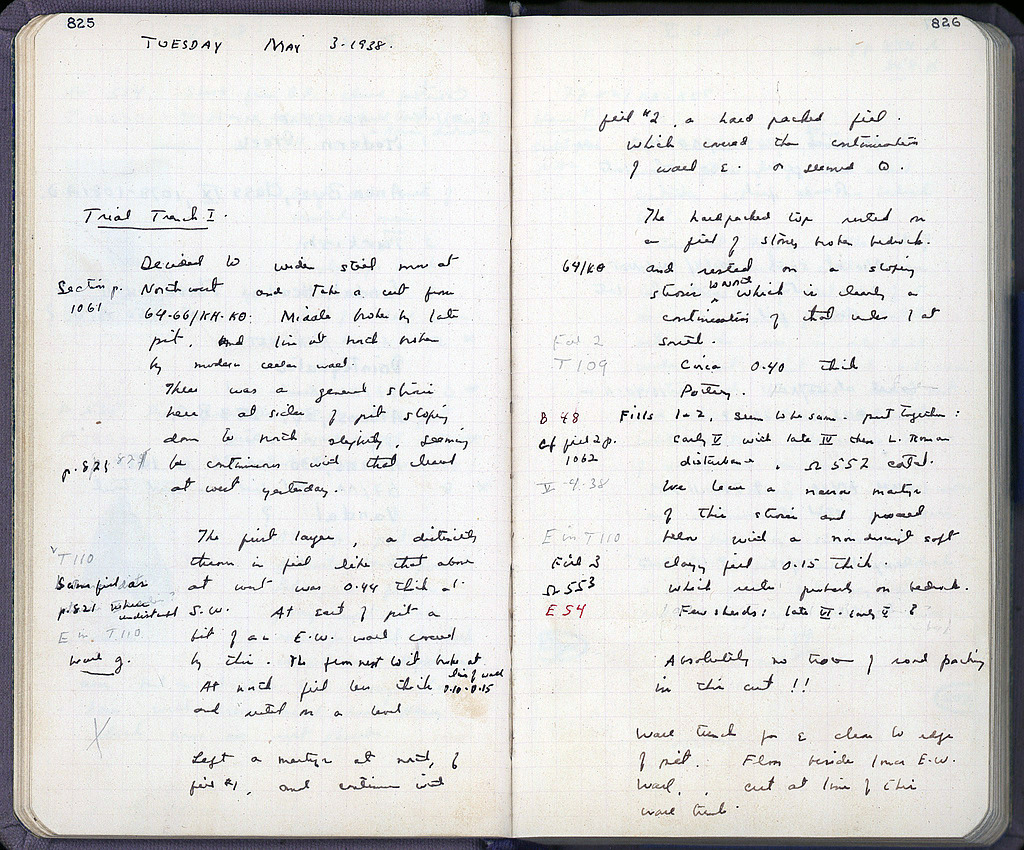 825
TUESDAY MAY 3-1938.
Trial Trench I.
Decided to widen still more at
Section p. 1061
North west and take a cut from
64-66/KH-KΘ: Middle broken by late
pit, and line at north broken
by modern cellar wall.
There was a general strosis
here at sides of pit sloping
down to north slightly, seeming
p. 821
be continuous with that cleared
at west yesterday.
The first layer, a distinctly
T 110
thrown in fill like that above
Same fill as
at west was 0.44 thick at
p. 821 undisturbed
S.W. At east of pit a
E in T.110
bit of an E.W. wall covered
Wall g.
by this. The firmest bit broke at line of wall
At north fill less thick 0.10-0.15
and rested on a level
Left a martyr at north, of
fill #1, and continue with
826
fill #2, a hard packed fill.
which covered the continuation
of wall E. or seemed to.
The hardpacked top rested on
a fill of stones broken bedrock.
64/KΘ and rested on a sloping
strosis to North which is clearly a
continuation of that under 1 at
Fill 2
south.
T 109
Circa 0.40 thick
Pottery.
B 48
Fills 1 & 2, seem to be same - put together:
cf fill 2 p. 1062
early V with late IV then L. Roman
disturbance, Ω 552 catal.
V-4-38
We leave a narrow martyr
of this strosis and proceed
E in T 110
below with a nondescript soft
Fill 3
clayey fill 0.15 thick.
Ω 553
which rests probably on bedrock.
E 54
Few sherds: late VI - early V ?
Absolutely no trace of road packing
in this cut !!
Wall trench for E clear to edge
of pit. Floor beside inner E.W.
Wall, cut at line of this
wall trench.